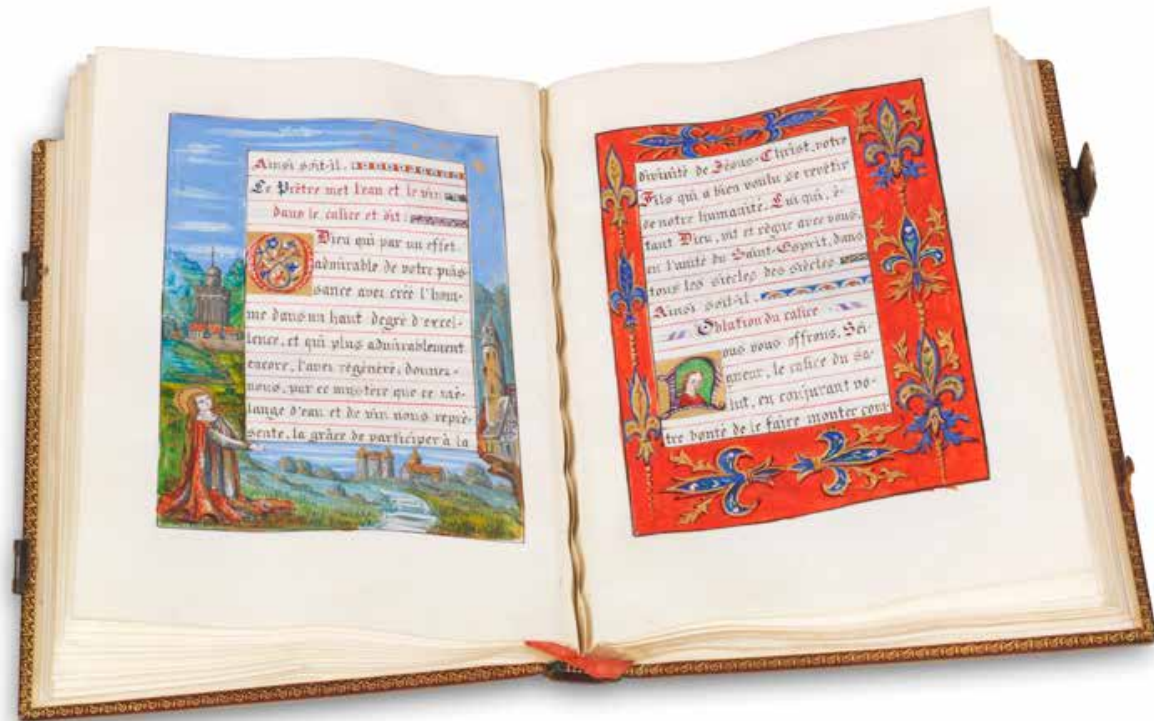 Ainsi soit-il.
Le Prêtre met l'eau et le vin
dans le calice et dit :
O Dieu qui par un effet
admirable de votre puis
sance avez créé l'hom-
me dans un haut degré d'excel-
lence, et qui plus admirablement
encore, l'avez régénéré, donnez-
nous, par ce mystère que ce mé-
lange d'eau et de vin nous repré-
sente, la grâce de participer à la
divinité de Jésus-Christ, votre
Fils qui a bien voulu se revêtir
de notre humanité. Lui qui, é-
tant Dieu, vit et règne avec vous,
en l'unité du Saint-Esprit, dans
tous les siècles des siècles
Ainsi soit-il.
Oblation du calice
Nous vous offrons, Sei-
gneur, le calice du sa-
lut, en conjurant vo-
tre bonté de le faire monter com-